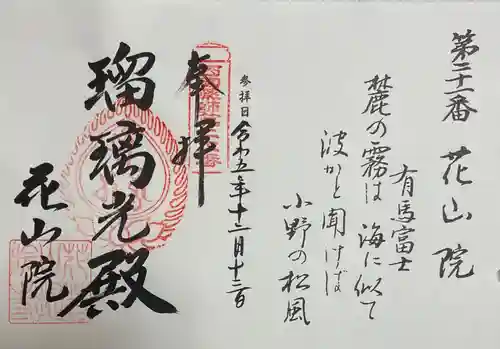 第二十一番 花山院
有馬富士
麓の霧は 海に似て
波かと聞けば
小野の松風
参拝日 令和五年十二月十二日
奉拝
瑠璃光殿
花山院